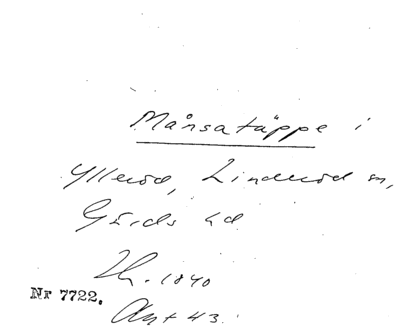 Månsatäppe i
Ylleröd, Linderöd sn,
Gärds hd
Th. 1840
Nr 7722.
Akt 43.